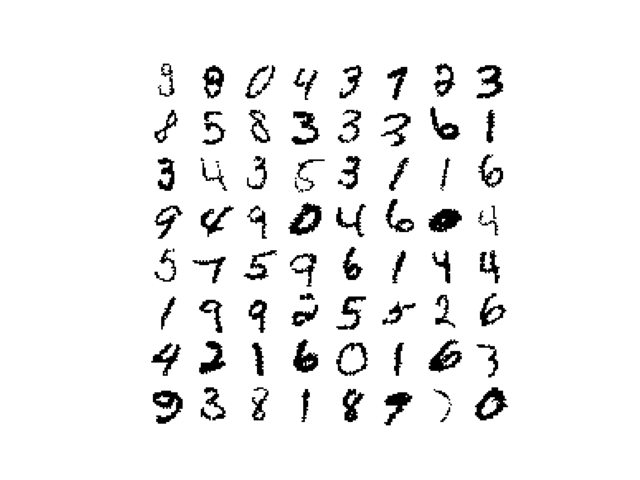 9 8 0 4 3 7 2 3
8 5 8 3 3 3 6 1
3 4 3 5 3 1 1 6
9 4 9 0 4 6 0 4
5 7 5 9 6 1 4 4
1 9 9 2 5 5 2 6
4 2 1 6 0 1 6 3
9 3 8 1 8 7 7 0